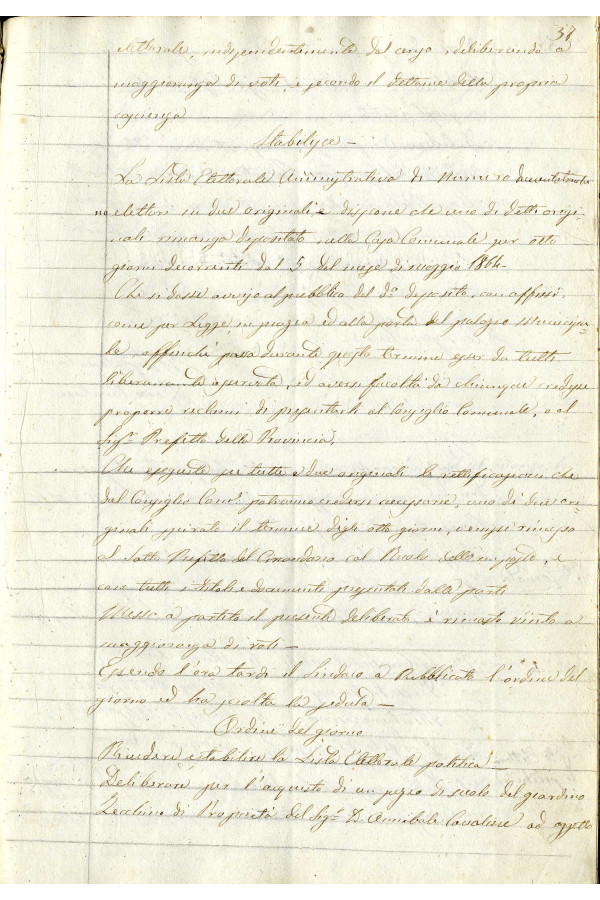 37
elettorale, independentemente dal censo, deliberando a
maggioranza di voti, e secondo il dettame della propria
coscienza
Stabilisce –
La Lista Elettorale Amministrativa di Numero
elettori in due originali, e dispone che uno di detti origi-
nali rimanga depositato nella Casa Comunale per otto
giorni decorrenti dal 5 del mese di maggio 1864–
Che si dasse avviso al pubblico del dº deposito, con affissi,
come per Legge, in piazza ed alla porta del palazzo Municipa-
le, affinchè possa durante questo termine esser da tutti
liberamente osservata, ed avere facoltà da chiunque credesse
proporre reclami di presentarli al Consiglio Comunale, o al
Sigr Prefetto della Provincia,
Che eseguite su tutti e due originali le rettificazioni che
dal Consiglio Comle potranno credersi necessarie, uno di due ori-
ginali spirato il termine degli otto giorni, venisse rimesso
al Sotto Prefetto del Circondario col Ruolo delle imposte, e
con tutti i titoli e documenti presentati dalle parti
Messo a partito il presente deliberato è rimasto vinto a
maggioranza di voti –
Essendo l'ora tardi il Sindaco a Pubblicato l'ordine del
giorno ed ha sciolta la seduta –
Ordine del giorno
Rivedere e stabilire la Lista Elettorale politica –
Deliberare per l'acquisto di un pezzo di suolo del giardino
di Proprietà del Sigr D. Annibale ad oggetto